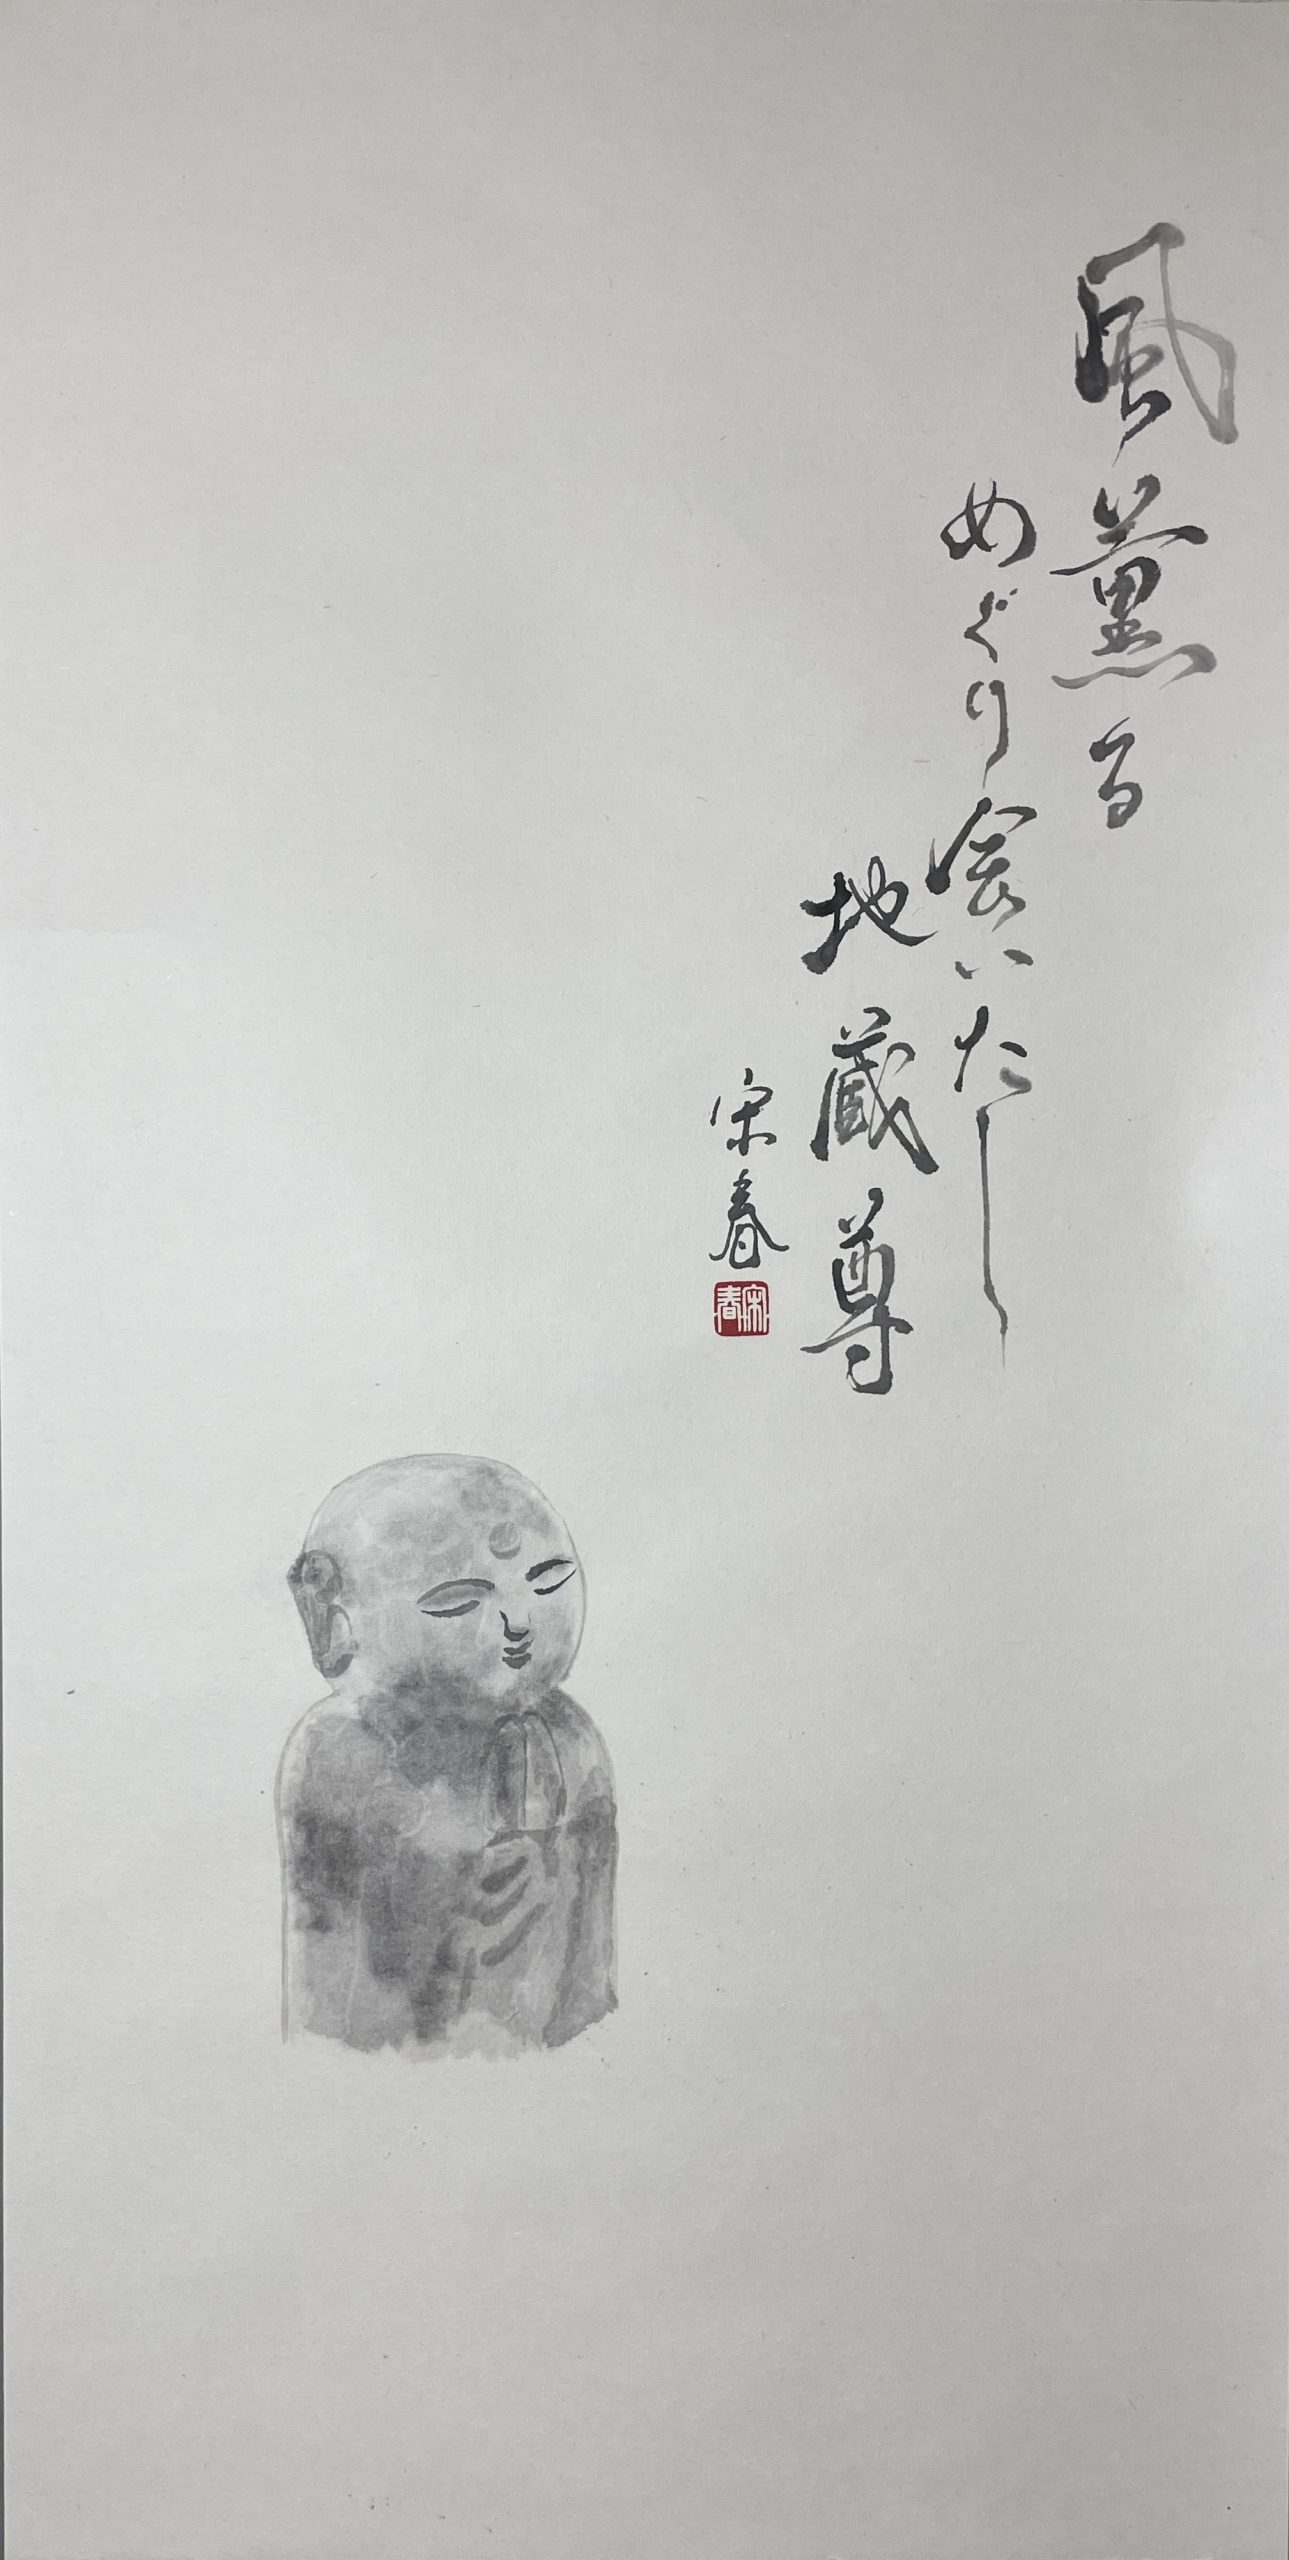 風薫る
めぐり会いたし
地蔵尊
宋春
宋春